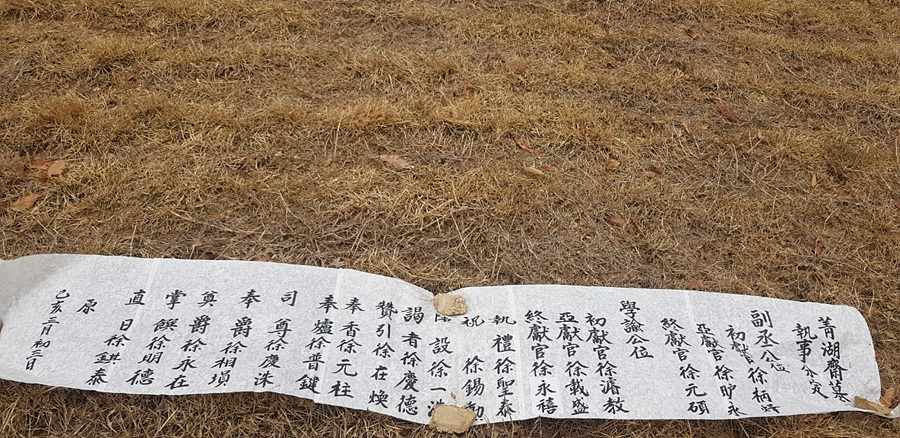 菁湖齋墓
執事分定
副丞公位
初獻官徐柄
亞獻官徐
終獻官徐元碩
學諭公位
初獻官徐濟教
亞獻官徐載盛
終獻官徐永禧
執禮徐聖泰
祝 徐錫
設徐一
謁者徐慶德
贊引徐在煥
奉香徐元柱
奉爐徐普鍵
司尊徐慶洙
奉爵徐相
奠爵徐永在
掌饌徐明德
直日徐鉷泰
原
己亥三月初三日